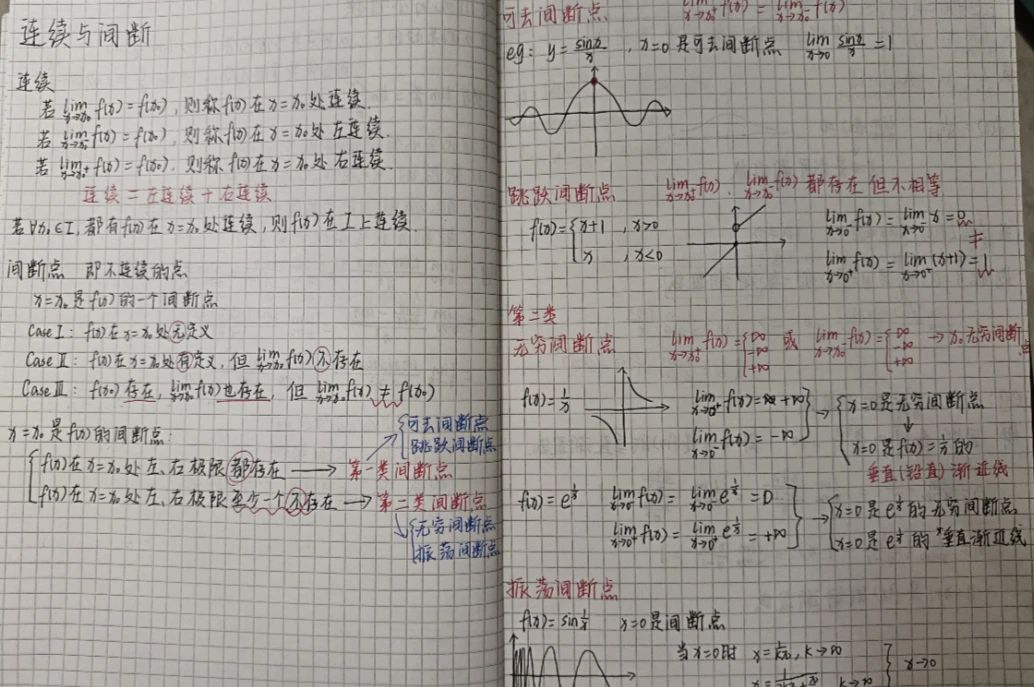 连续与间断
连续
若 lim x→x₀ f(x)=f(x₀),则称f(x)在x=x₀处连续.
若 lim x→x₀⁻ f(x)=f(x₀),则称f(x)在x=x₀处左连续.
若 lim x→x₀⁺ f(x)=f(x₀),则称f(x)在x=x₀处右连续.
连续=左连续+右连续
若∀x₀∈I,都有f(x)在x=x₀处连续,则f(x)在I上连续.
间断点 即不连续的点
x=x₀是f(x)的一个间断点
Case Ⅰ: f(x)在x=x₀处无定义
Case Ⅱ: f(x)在x=x₀处有定义,但 lim x→x₀ f(x)不存在
Case Ⅲ: f(x₀)存在, lim x→x₀ f(x)也存在,但 lim x→x₀ f(x)≠f(x₀)
x=x₀是f(x)的间断点:
可去间断点
跳跃间断点
f(x)在x=x₀处左、右极限都存在 → 第一类间断点
f(x)在x=x₀处左、右极限至少一个不存在 → 第二类间断点
无穷间断点
振荡间断点
可去间断点 lim x→x₀⁺ f(x)=lim x→x₀⁻ f(x)
eg: y=sinx/x ,x=0是可去间断点 lim x→0 sinx/x=1
跳跃间断点 lim x→x₀⁺ f(x)、lim x→x₀⁻ f(x)都存在但不相等
f(x)={x+1 ,x>0
x ,x<0
lim x→0⁻ f(x)=lim x→0⁻ x=0
≠
lim x→0⁺ f(x)=lim x→0⁺ (x+1)=1
第二类
无穷间断点 lim x→x₀⁺ f(x)={∞ -∞ +∞ 或 lim x→x₀⁻ f(x)={∞ -∞ +∞ →x₀无穷间断点
f(x)=1/x
lim x→0⁺ f(x)=+∞
lim x→0⁻ f(x)=-∞
x=0是无穷间断点
↓
x=0是f(x)=1/x的
垂直(铅直)渐近线
f(x)=e^(1/x) lim x→0⁻ f(x)=lim x→0⁻ e^(1/x)=0
lim x→0⁺ f(x)=lim x→0⁺ e^(1/x)=+∞
x=0是e^(1/x)的无穷间断点
x=0是e^(1/x)的垂直渐近线
振荡间断点
f(x)=sin1/x x=0是间断点
当x=0时 x=1/kπ,k→∞
k→∞
x→0